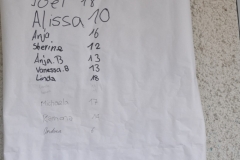 Joel 18
Alissa 10
Anja 16
Sherina 12
Anja.B 13
Vanessa.B 13
Linda 16
Michaela 17